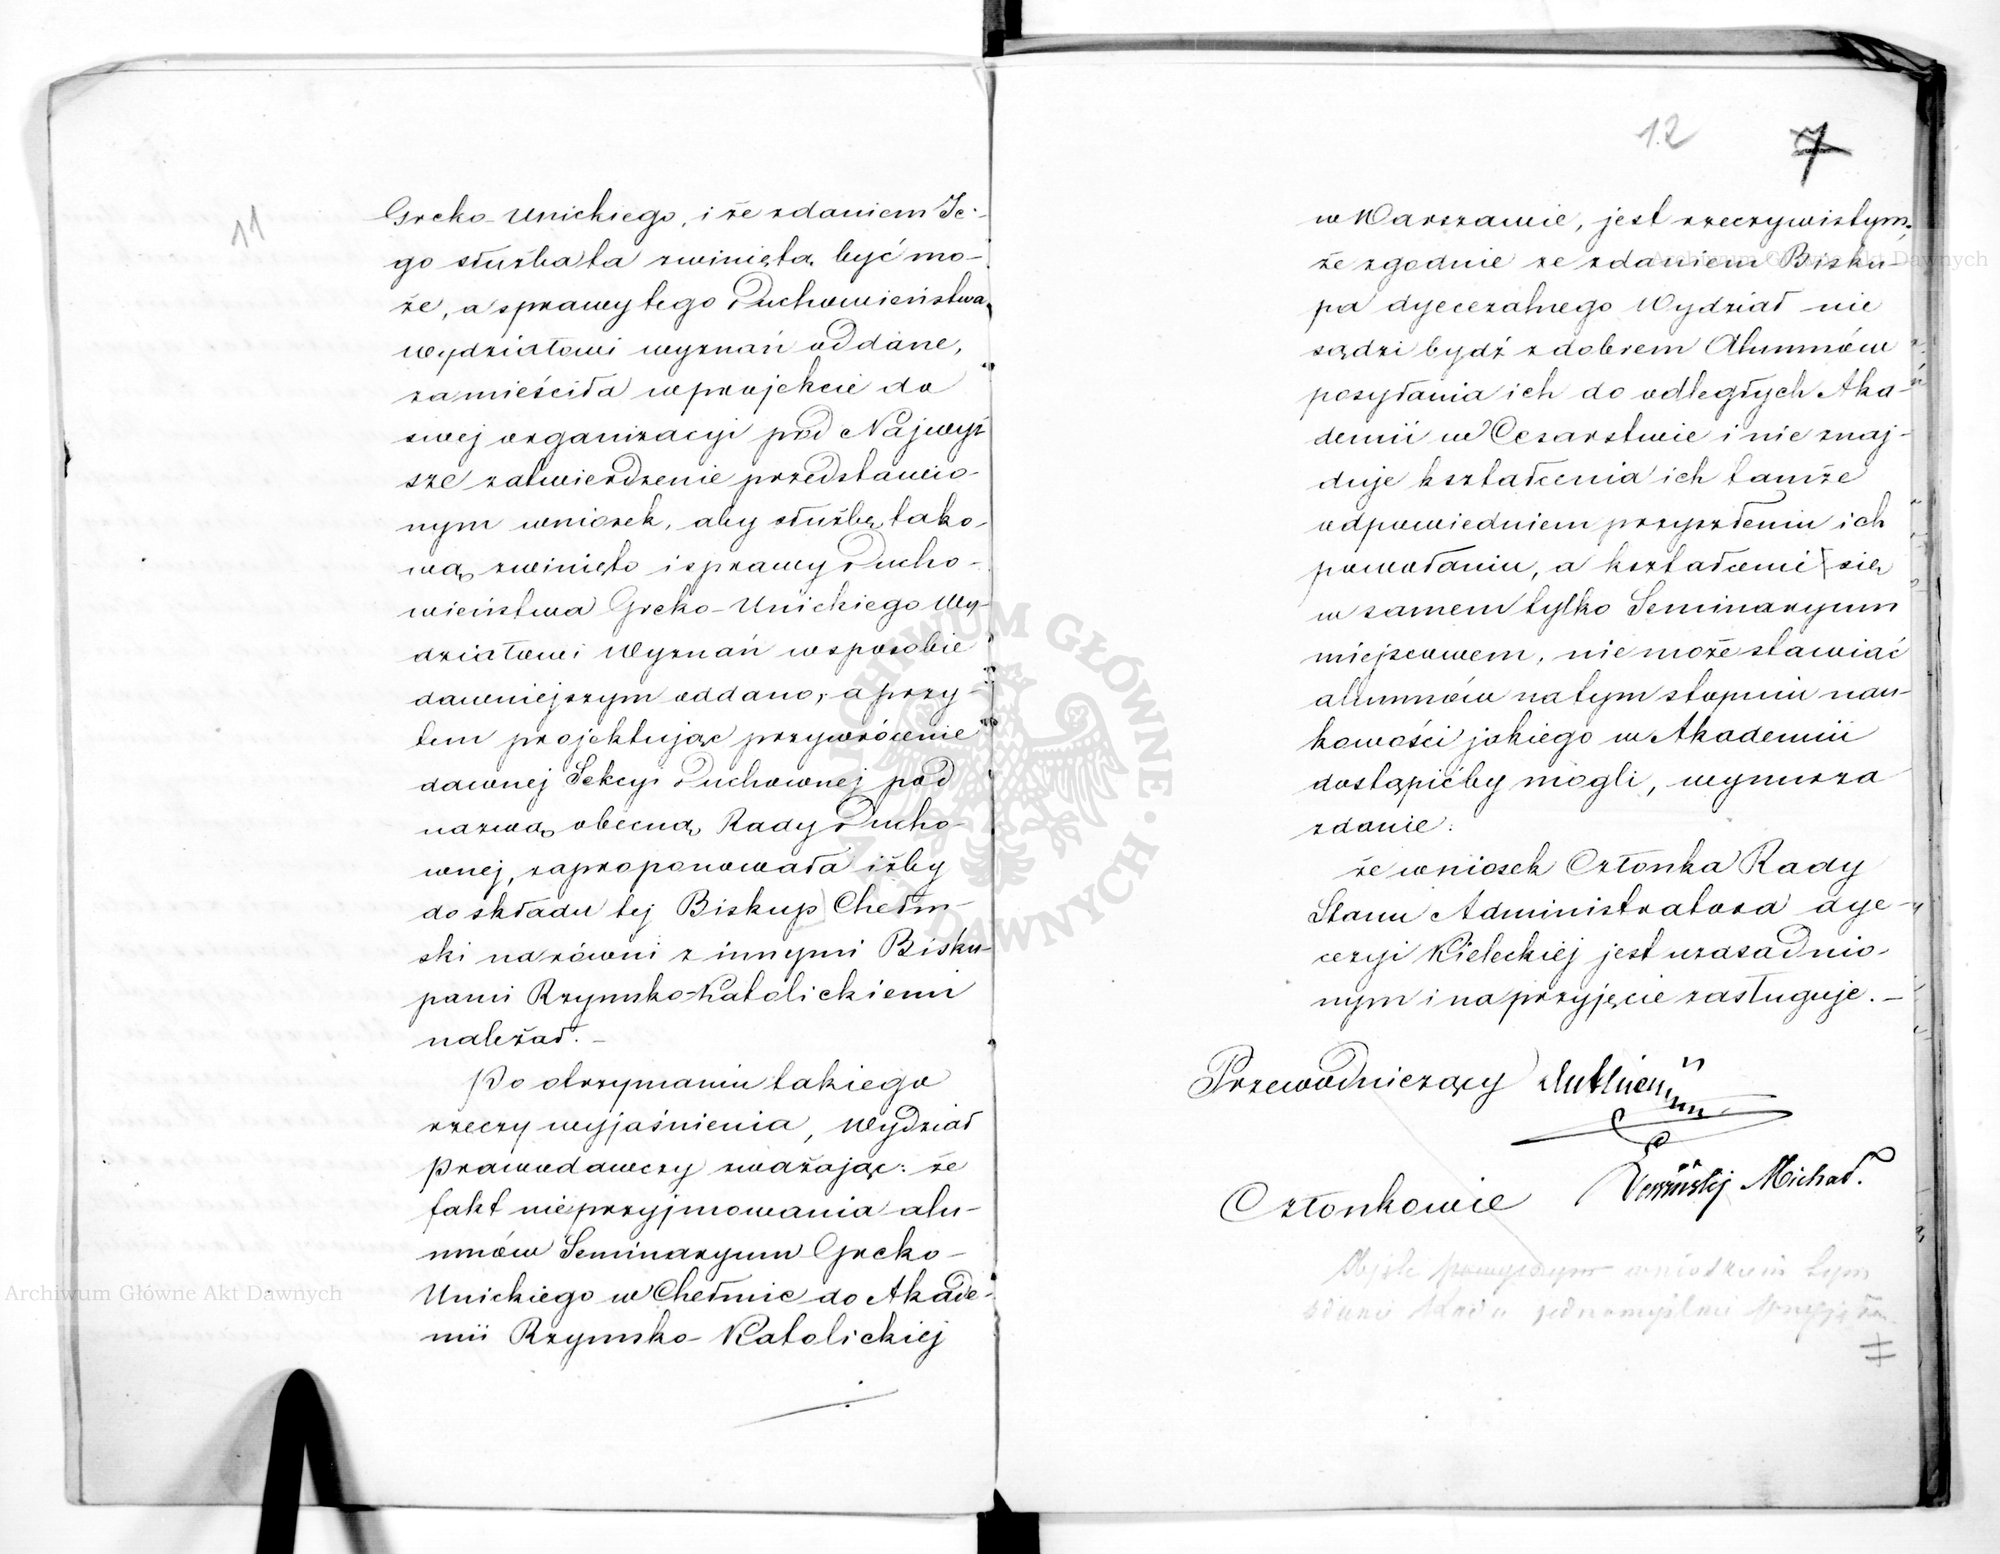 11
Grcko-Unickiego, i że zdaniem Je-
go służba ta zwiniętą być mo-
że, a sprawy tego Duchowieństwa
wydziałowi wyznań oddane,
zamieściła w projekcie do
swej organizacyi pod Najwyż
sze zatwierdzenie przedstawio-
nym wniosek, aby służbę tako-
wą zwinięto i sprawy Ducho-
wieństwa Grcko-Unickiego Wy-
działowi Wyznań w sposobie
dawniejszym oddano, a przy-
tem projektując przywrócenie
dawnej Sekcyi Duchownej pod
nazwą obecną Rady Ducho-
wnej, zaproponowała iżby
do składu tej Biskup Chełm-
ski na równi z innymi Bisku-
pami Rzymsko-Katolickiemi
należał. –
Po otrzymaniu takiego
rzeczy wyjaśnienia, Wydział
Prawodawczy zważając: że
fakt nieprzyjmowania alu-
mnów Seminaryum Grcko-
Unickiego w Chełmie do Akade-
mii Rzymsko-Katolickiej
12 7
w Warszawie, jest rzeczywistym,
że zgodnie ze zdaniem Bisku-
pa dyecezalnego Wydział nie
sądzi bydź z dobrem Alumnów
posyłania ich do odległych Aka-
demii w Cesarstwie i nie znaj-
duje kształcenia ich tamże
odpowiedniem przyszłemu ich
powołaniu, a kształcenie się
w samem tylko Seminaryum
miejscowem, nie może stawiać
alumnów na tym stopniu nau-
kowości jakiego w Akademii
dostąpićby mogli, wynurza
zdanie:
że wniosek Członka Rady
Stanu Administratora dye-
cezyi Kieleckiej jest uzasadnio-
nym i na przyjęcie zasługuje. –
Przewodniczący
Członkowie Michał.
wnioskiem tym
zdanie Rada jednomyślnie przyjęła.
Archiwum Główne Akt Dawnych
Archiwum Główne Akt Dawnych
ARCHIWUM GŁÓWNE AKT DAWNYCH